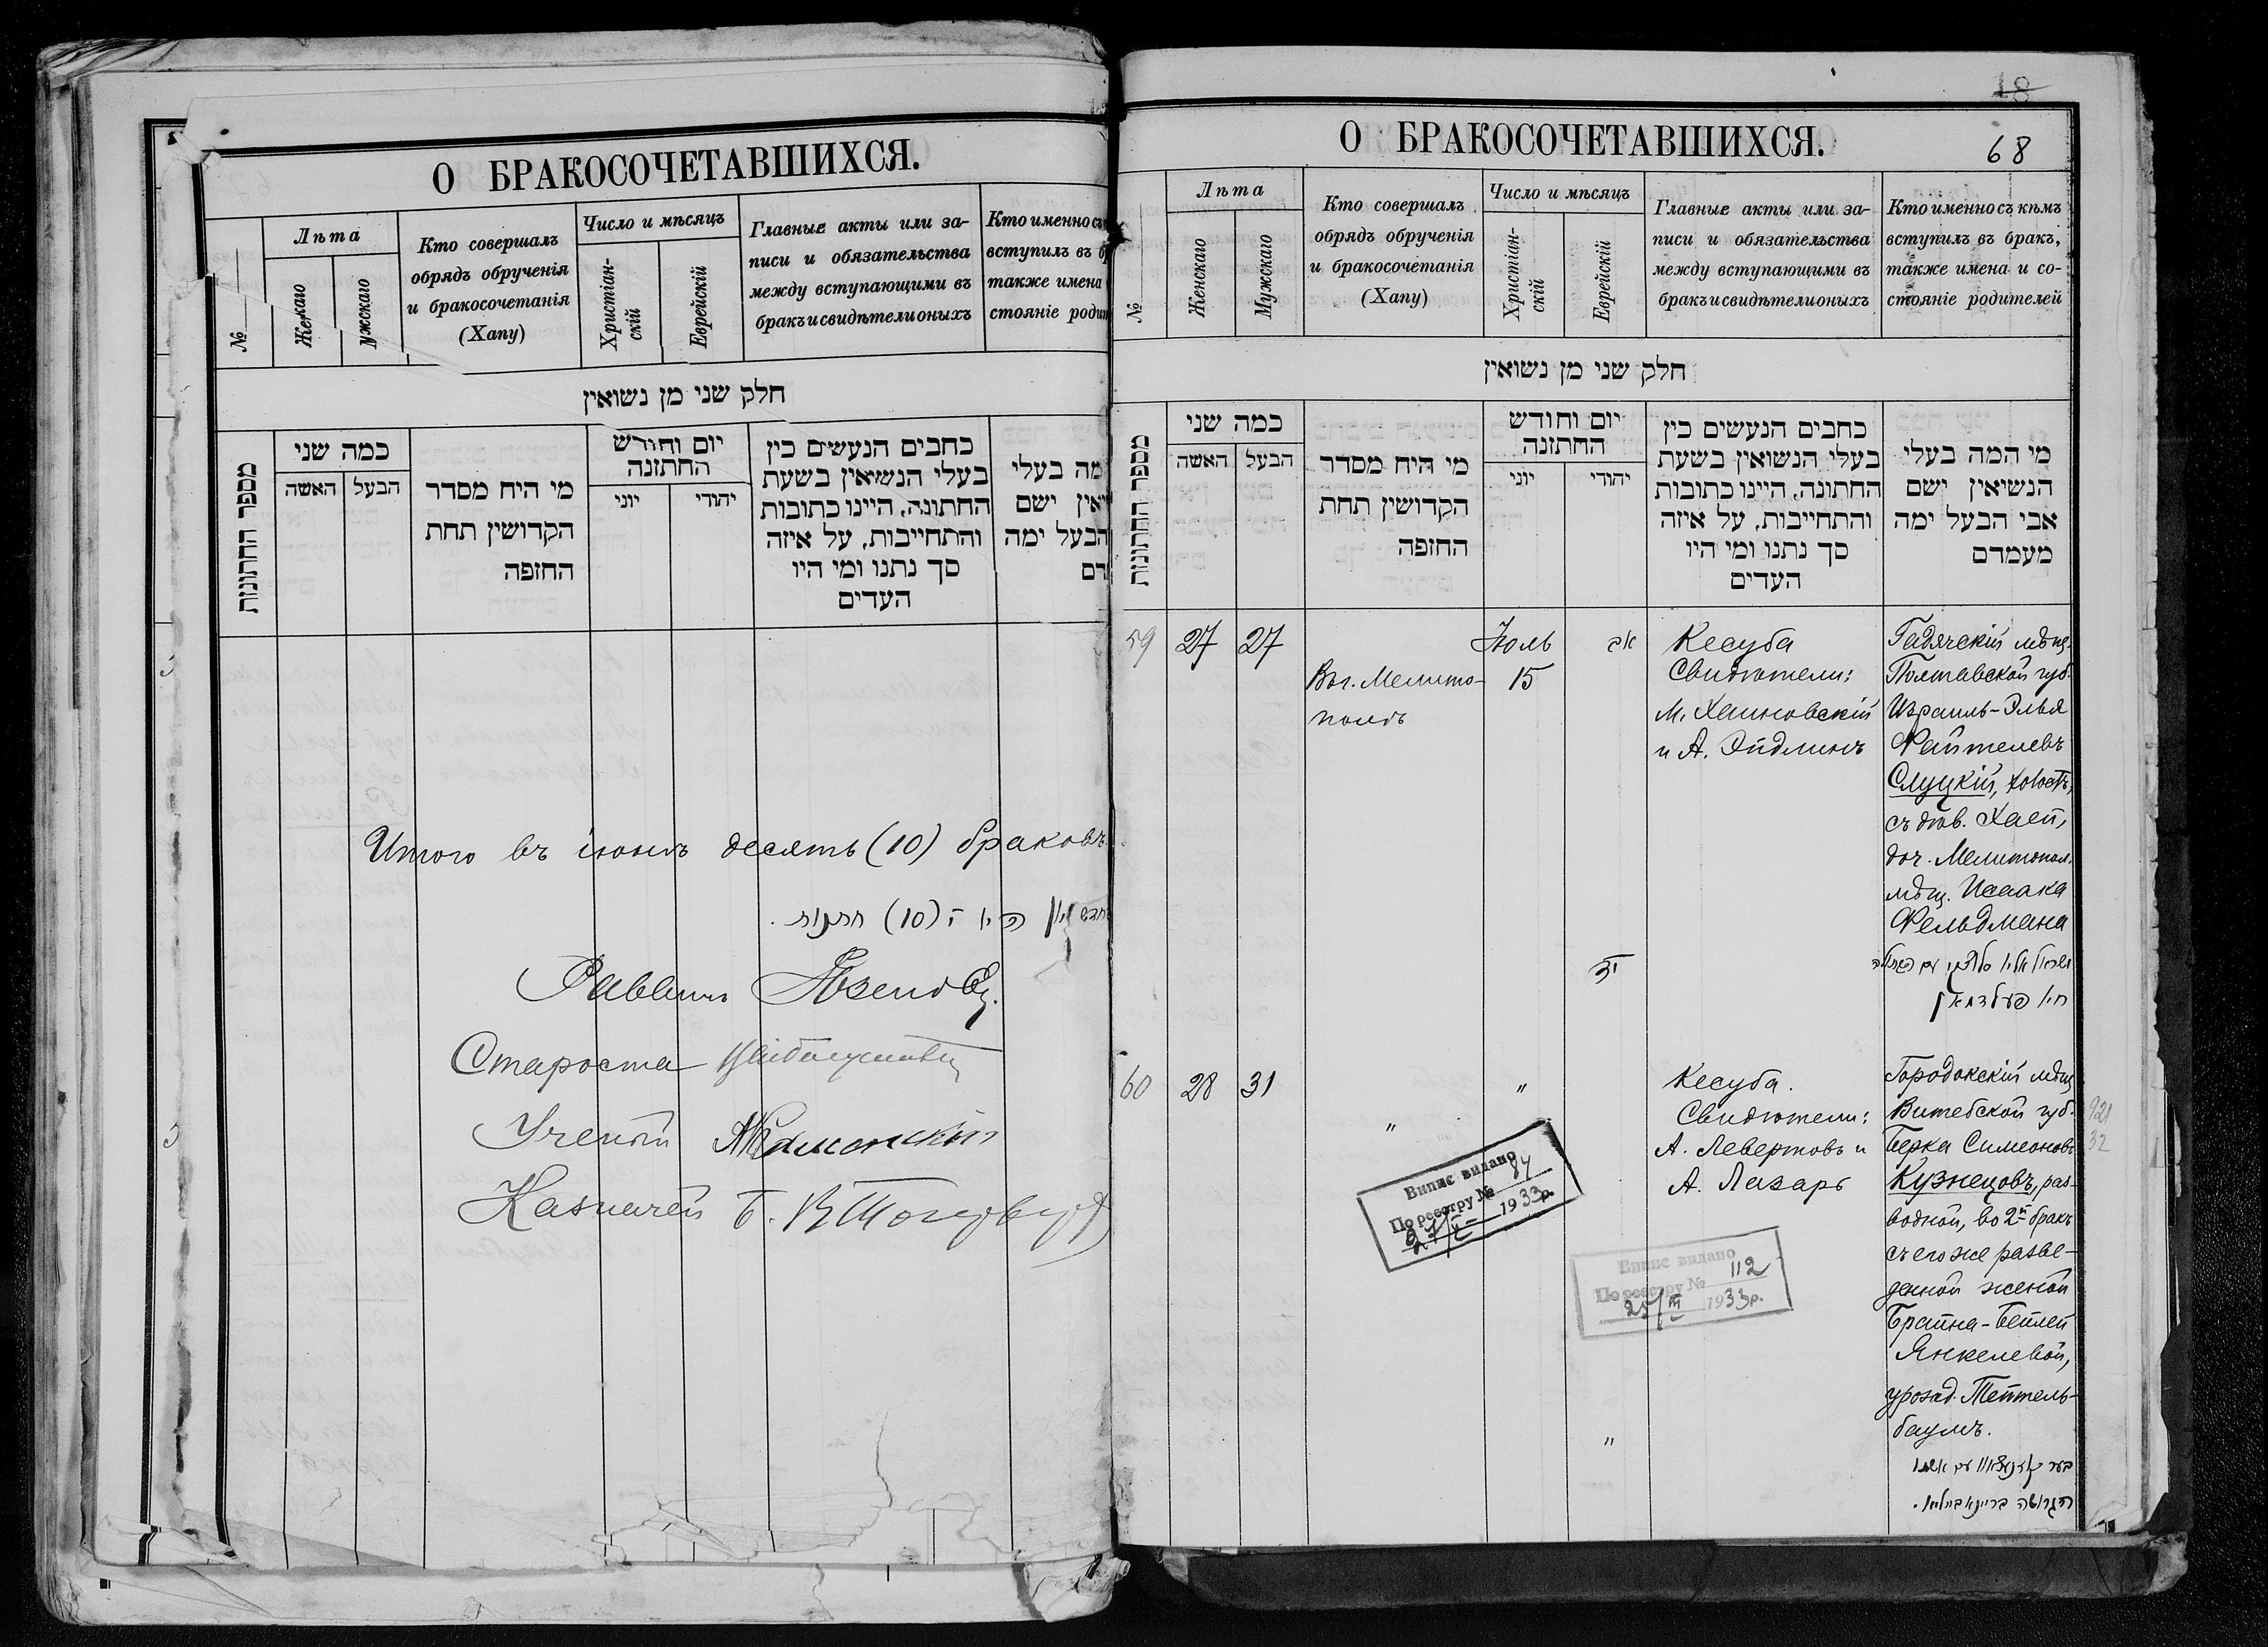 О БРАКОСОЧЕТАВШИХСЯ.
№
Лѣта
Женскаго
Мужскаго
Кто совершалъ
обрядъ обрученія
и бракосочетанія
(Хапу)
Число и мѣсяцъ
Христіан-
скій
Еврейскій
Главные акты или за-
писи и обязательства
между вступающими въ
бракъ и свидѣтели оныхъ
Кто именно съ
вступилъ въ б
также имена
стояніе роди
חלק שני מן נשואין
מספר החתונות
כמה שני
האשה
הבעל
מי היה מסדר
הקדושין תחת
החופה
יום וחודש
החתונה
יוני
יהודי
כתבים הנעשים בין
בעלי הנשואין בשעת
החתונה, היינו כתובות
והתחייבות, על איזה
סך נתנו ומי היו
העדים
מה בעלי
יאין ישם
הבעל ימה
Итого въ іюнѣ десять (10) браковъ.
(10) חתנות.
Раввинъ
Староста
Ученый
Казначей
18
О БРАКОСОЧЕТАВШИХСЯ.
68
№
Лѣта
Женскаго
Мужскаго
Кто совершалъ
обрядъ обрученія
и бракосочетанія
(Хапу)
Число и мѣсяцъ
Христіан-
скій
Еврейскій
Главные акты или за-
писи и обязательства
между вступающими въ
бракъ и свидѣтели оныхъ
Кто именно съ кѣмъ
вступилъ въ бракъ,
также имена и со-
стояніе родителей
חלק שני מן נשואין
מספר החתונות
כמה שני
האשה
הבעל
מי היה מסדר
הקדושין תחת
החופה
יום וחודש
החתונה
יוני
יהודי
כתבים הנעשים בין
בעלי הנשואין בשעת
החתונה, היינו כתובות
והתחייבות, על איזה
סך נתנו ומי היו
העדים
מי המה בעלי
הנשיאין ישם
אבי הבעל ימה
מעמדם
59
27
27
Въ г. Мелито-
полѣ
Іюль
15
אב
יד
Кесуба
Свидѣтели:
М. Хаиновскій
и А. Эйдлинъ
Гадячскій мѣщ.
Полтавской губ.
Израиль-Элья
Файтелевъ
Слуцкій, холостъ,
съ дѣв. Хаей,
доч. Мелитопол.
мѣщ. Исаака
Фельдмана
ישראל אליא סלוצקי עם הבתולה
חיא פעלדמאן
60
28
31
"
"
"
Кесуба.
Свидѣтели:
А. Левертовъ и
А. Лазарь
Городокскій мѣщ
Витебской губ.
Берка Симеоновъ
Кузнецовъ, раз-
водной, во 2й бракъ
съ его же разве-
денной женой
Брайна-Бейлей
Янкелевой,
урожд. Тейтель-
баумъ.
בער קוזנצאוו עם אשתו
הגרושה בריינא ביילא.
921
32
Випис видано
По реєстру № 84
1933р.
Випис видано
По реєстру № 112
25/III 1933р.